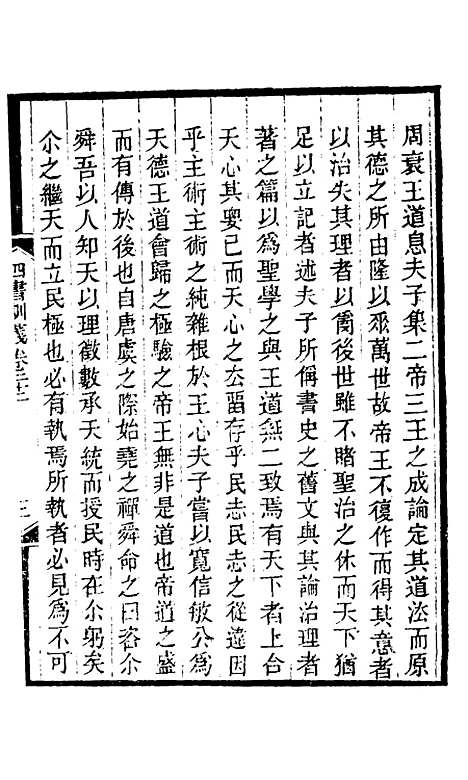 周衰王道息夫子集二帝三王之成論定其道法而原
其德之所由隆以眎萬世故帝王不復作而得其意者
以治失其理者以亂後世雖不睹聖治之休而天下猶
足以立記者述夫子所稱書史之舊文與其論治理者
著之篇以爲聖學之與王道無二致焉有天下者上合
天心其要已而天心之去留存乎民志民志之從違因
乎主術主術之純雜根於王心夫子嘗以寬信敏公爲
天德王道會歸之極驗之帝王無非是道也帝道之盛
而有傳於後也自唐虞之際始堯之禪舜命之曰咨尒
舜吾以人知天以理徵數承天統而授民時在尒躬矣
尒之繼天而立民極也必有執焉所執者必見爲不可
四書訓義卷二十
三